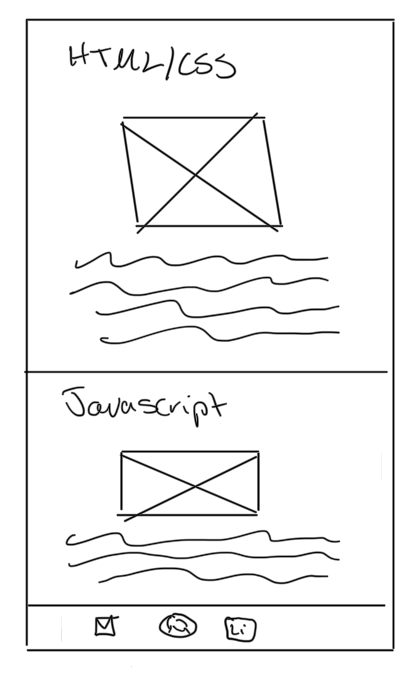 HTML/CSS
Javascript
Li